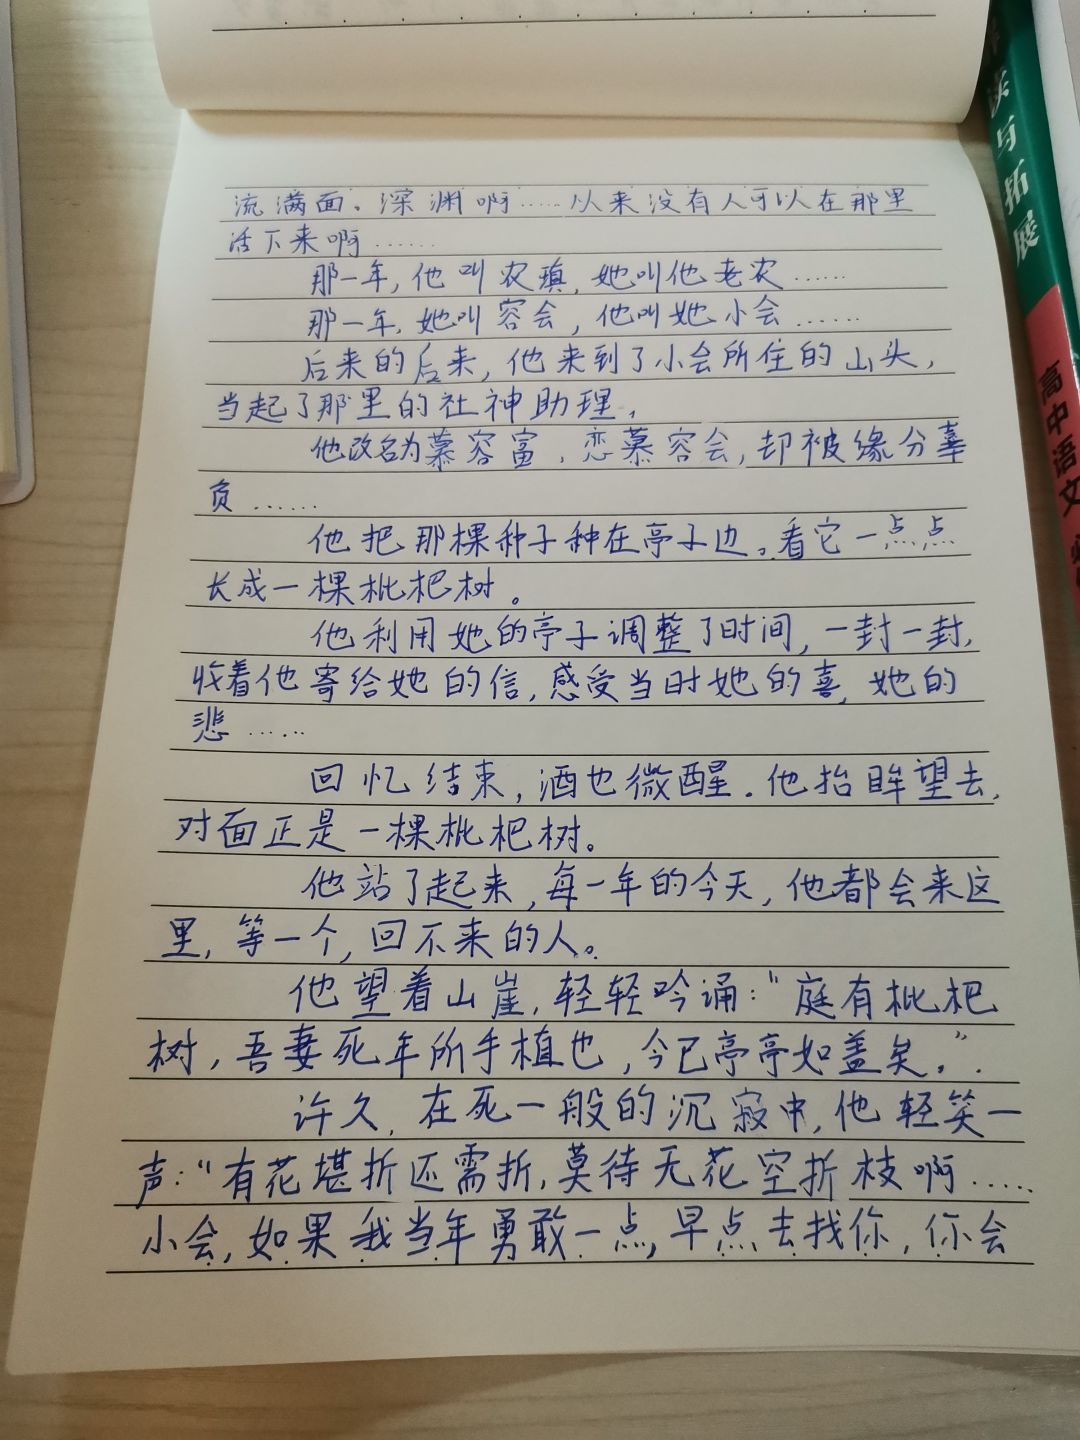 流满面。深渊啊……以来没有人可以在那里
活下来啊……
那一年,他叫农瑱,她叫他老农……
那一年,她叫容会,他叫她小会……
后来的后来,他来到了小会所住的山头,
当起了那里的社神助理,
他改名为慕容富,恋慕容会,却被缘分辜
负……
他把那棵种子种在亭子边。看它一点点
长成一棵枇杷树。
他利用她的亭子调整了时间,一封一封,
收着他寄给她的信,感受当时她的喜,她的
悲……
回忆结束,酒也微醒.他抬眸望去,
对面正是一棵枇杷树。
他站了起来,每一年的今天,他都会来这
里,等一个,回不来的人。
他望着山崖,轻轻吟诵:“庭有枇杷
树,吾妻死年所手植也,今已亭亭如盖矣。”.
许久,在死一般的沉寂中,他轻笑一
声:“有花堪折还需折,莫待无花空折枝啊……
小会,如果我当年勇敢一点,早点去找你,你会
读与拓展
高中语文